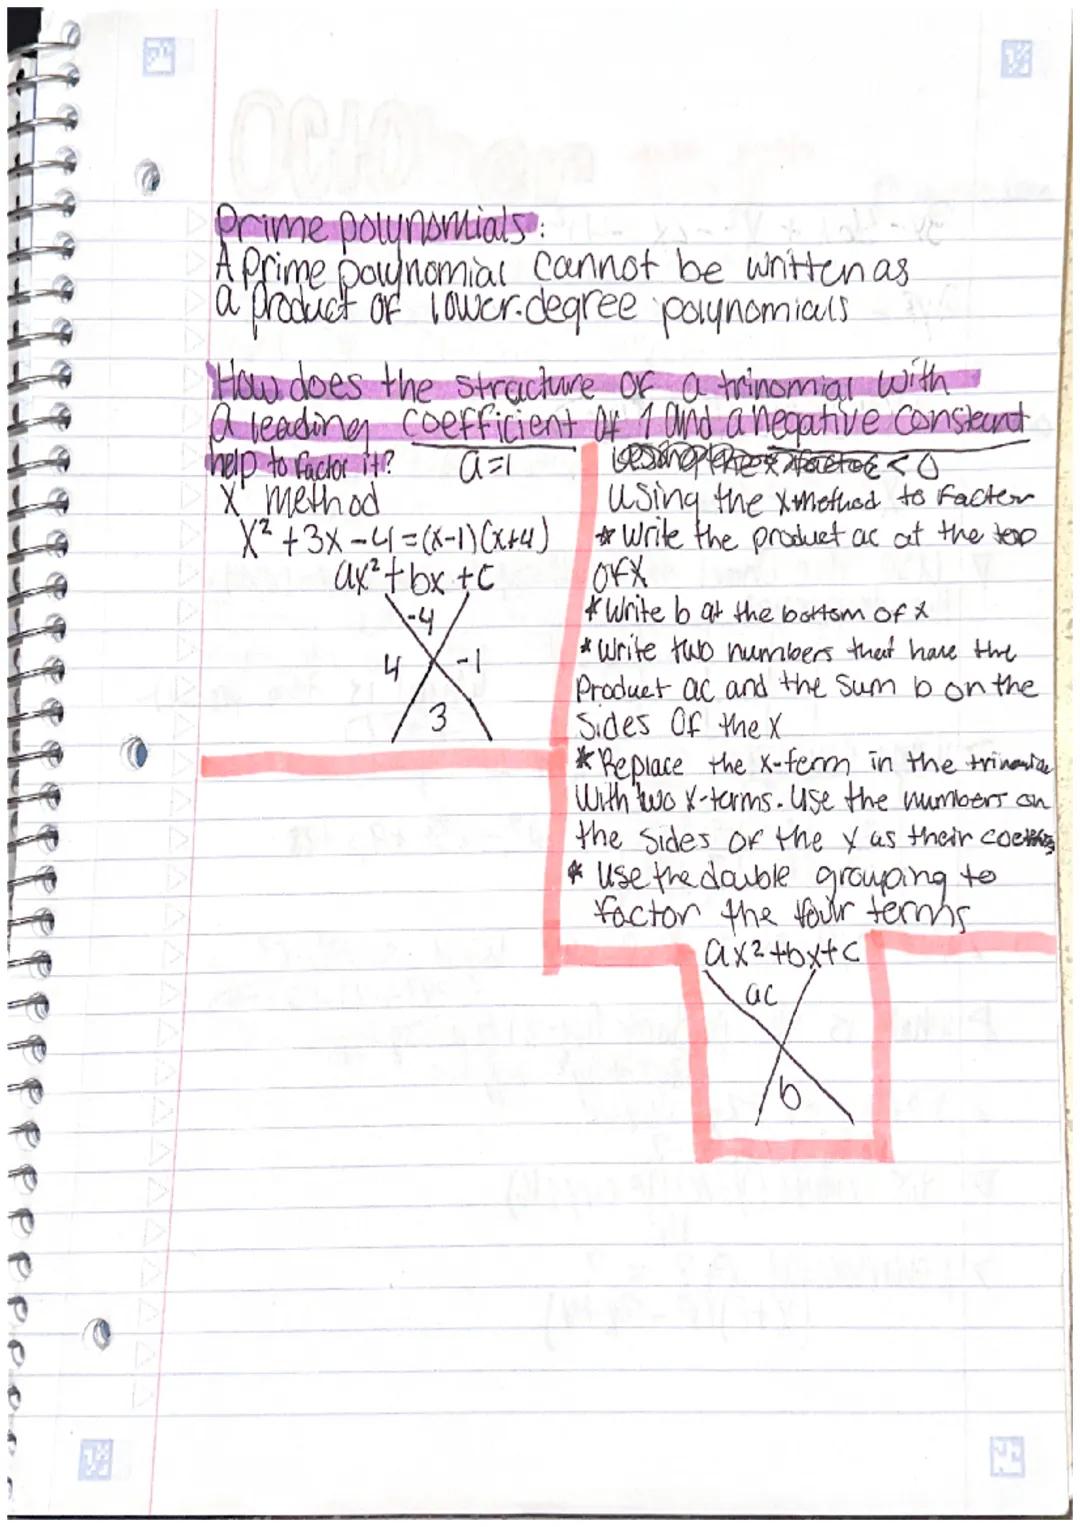 Prime polynomials:
A prime polynomial cannot be written as
a product of lower-degree polynomials
How does the structure of a trinomial with
a leading coefficient of 1 and a negative constant
help to factor it?
a=1
< 0
X method
x² + 3x - 4 = (x-1)(x+4)
ax² + bx + c
-4
4
-1
3
Using the x method to factor
* Write the product ac at the top
of X
* Write b at the bottom of x
* Write two numbers that have the
Product ac and the sum b on the
Sides Of the X
* Replace the x-term in the trinomial
With two x-terms. Use the numbers on
the sides of the x as their
* Use the double grouping to
factor the four terms
ax² + bx + c
ac
b